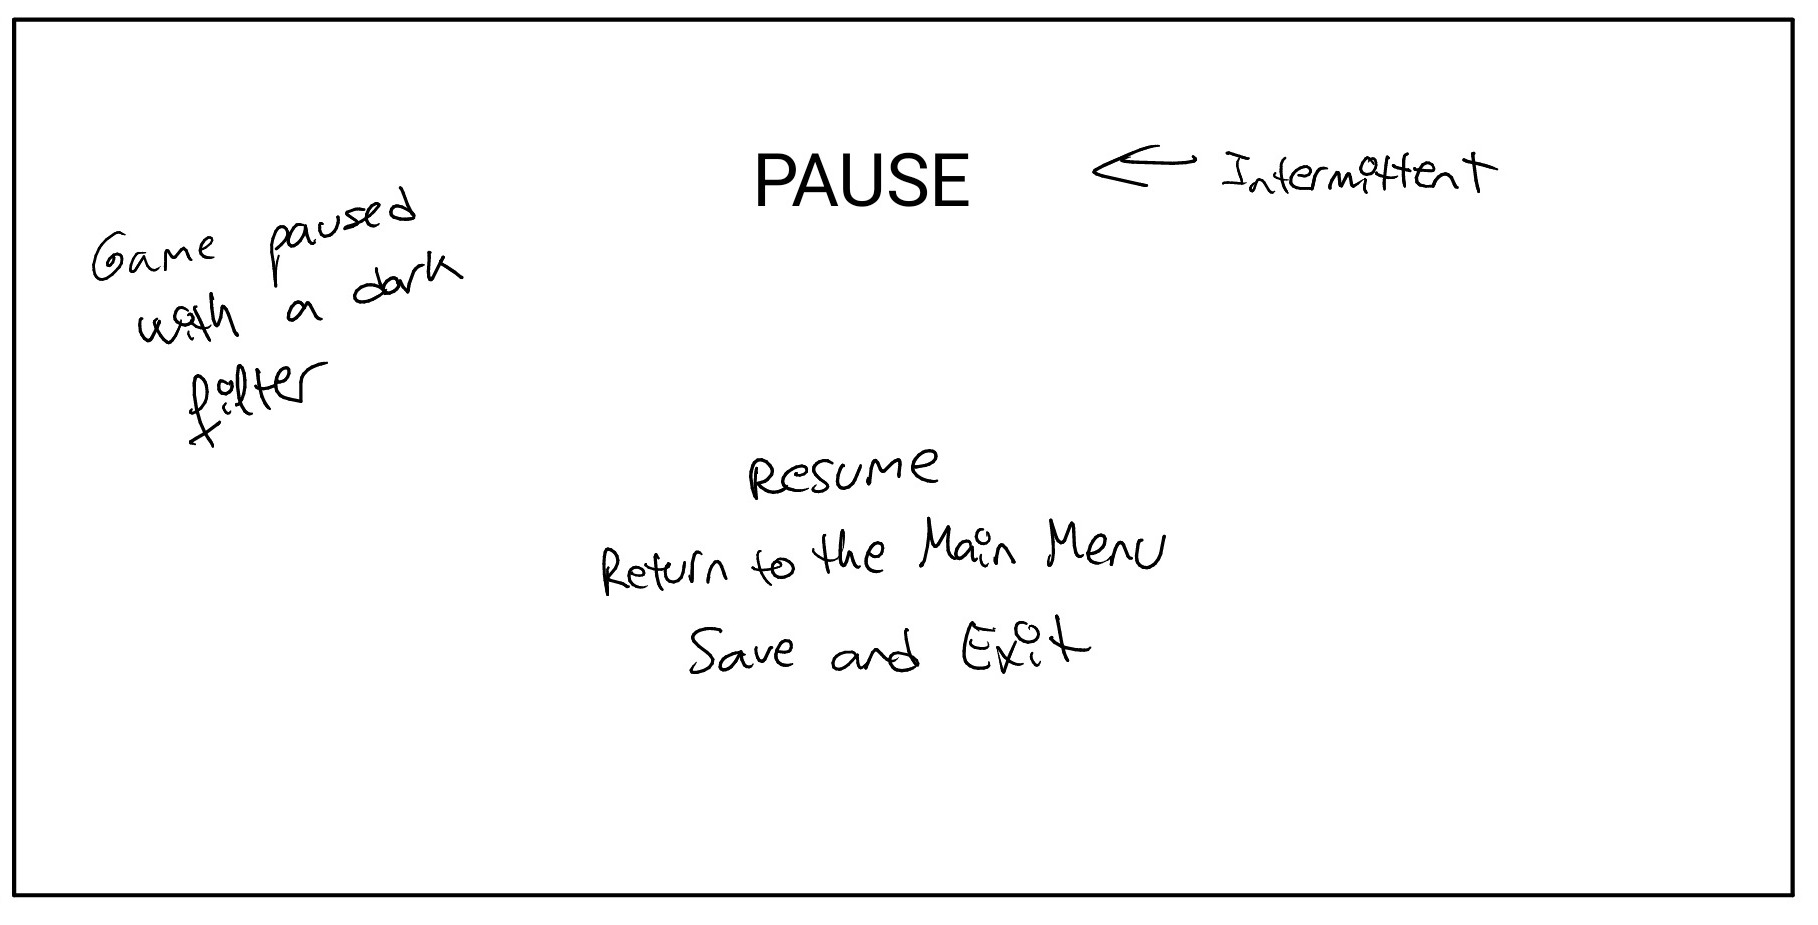 PAUSE
Intermittent
Game paused
with a dark
filter
Resume
Return to the Main Menu
Save and Exit